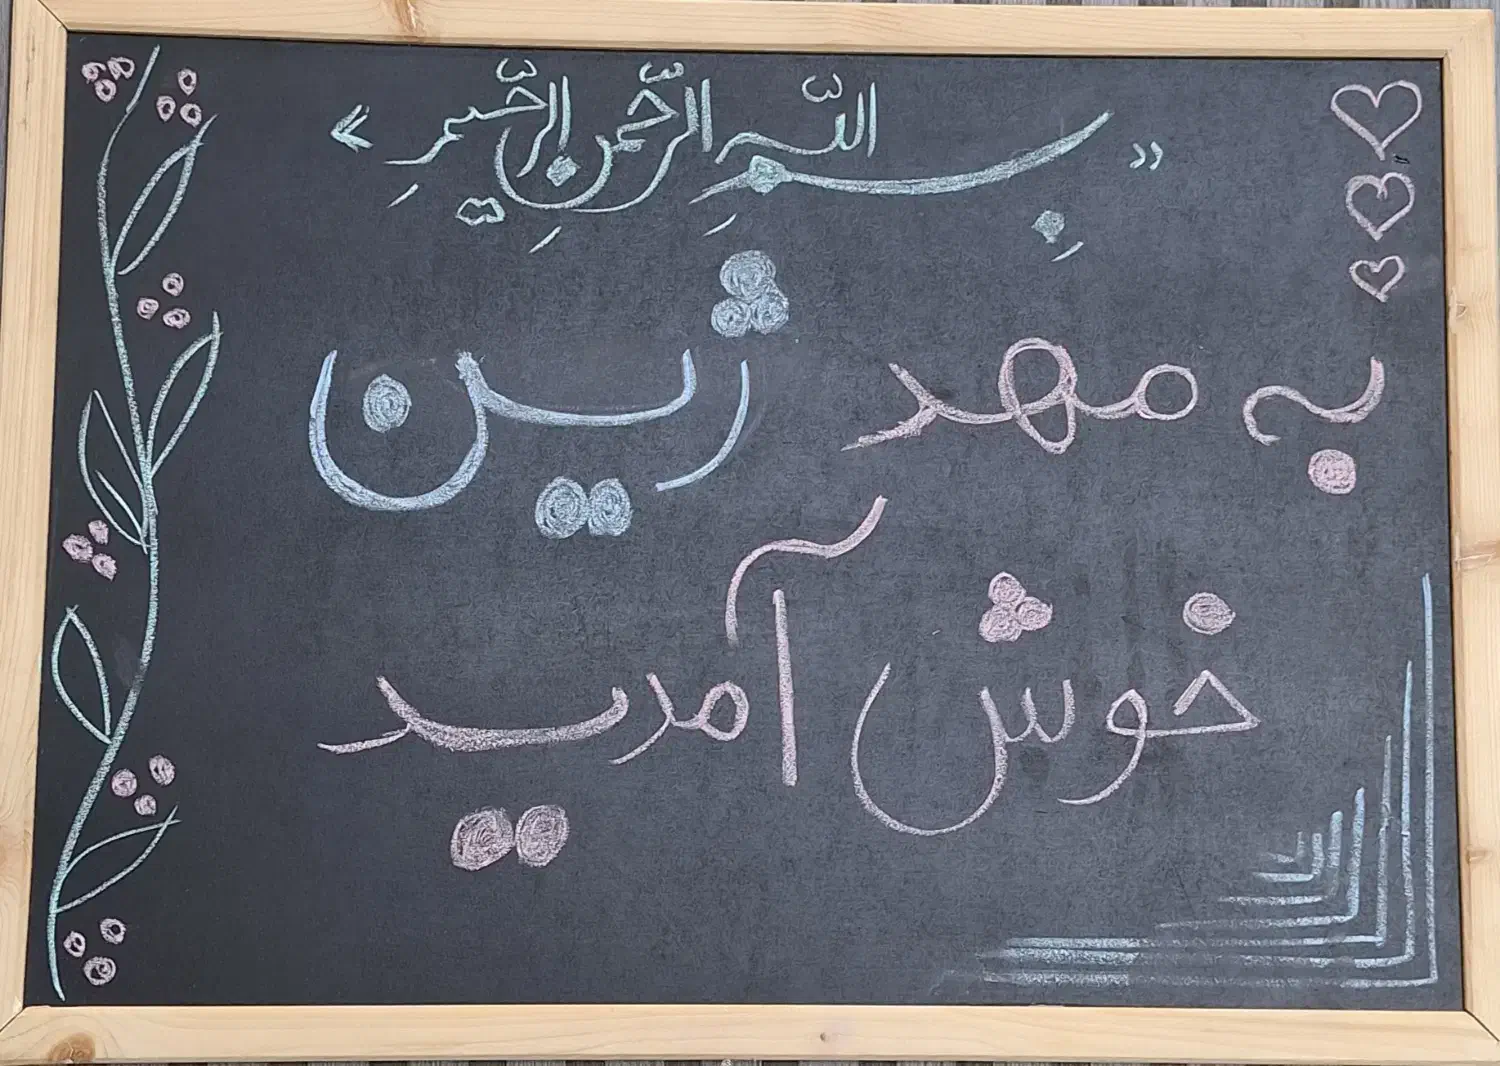 « بِسْمِ اللّهِ الرَّحْمنِ الرَّحیمِ »
به مهد ژین
خوش آمدید